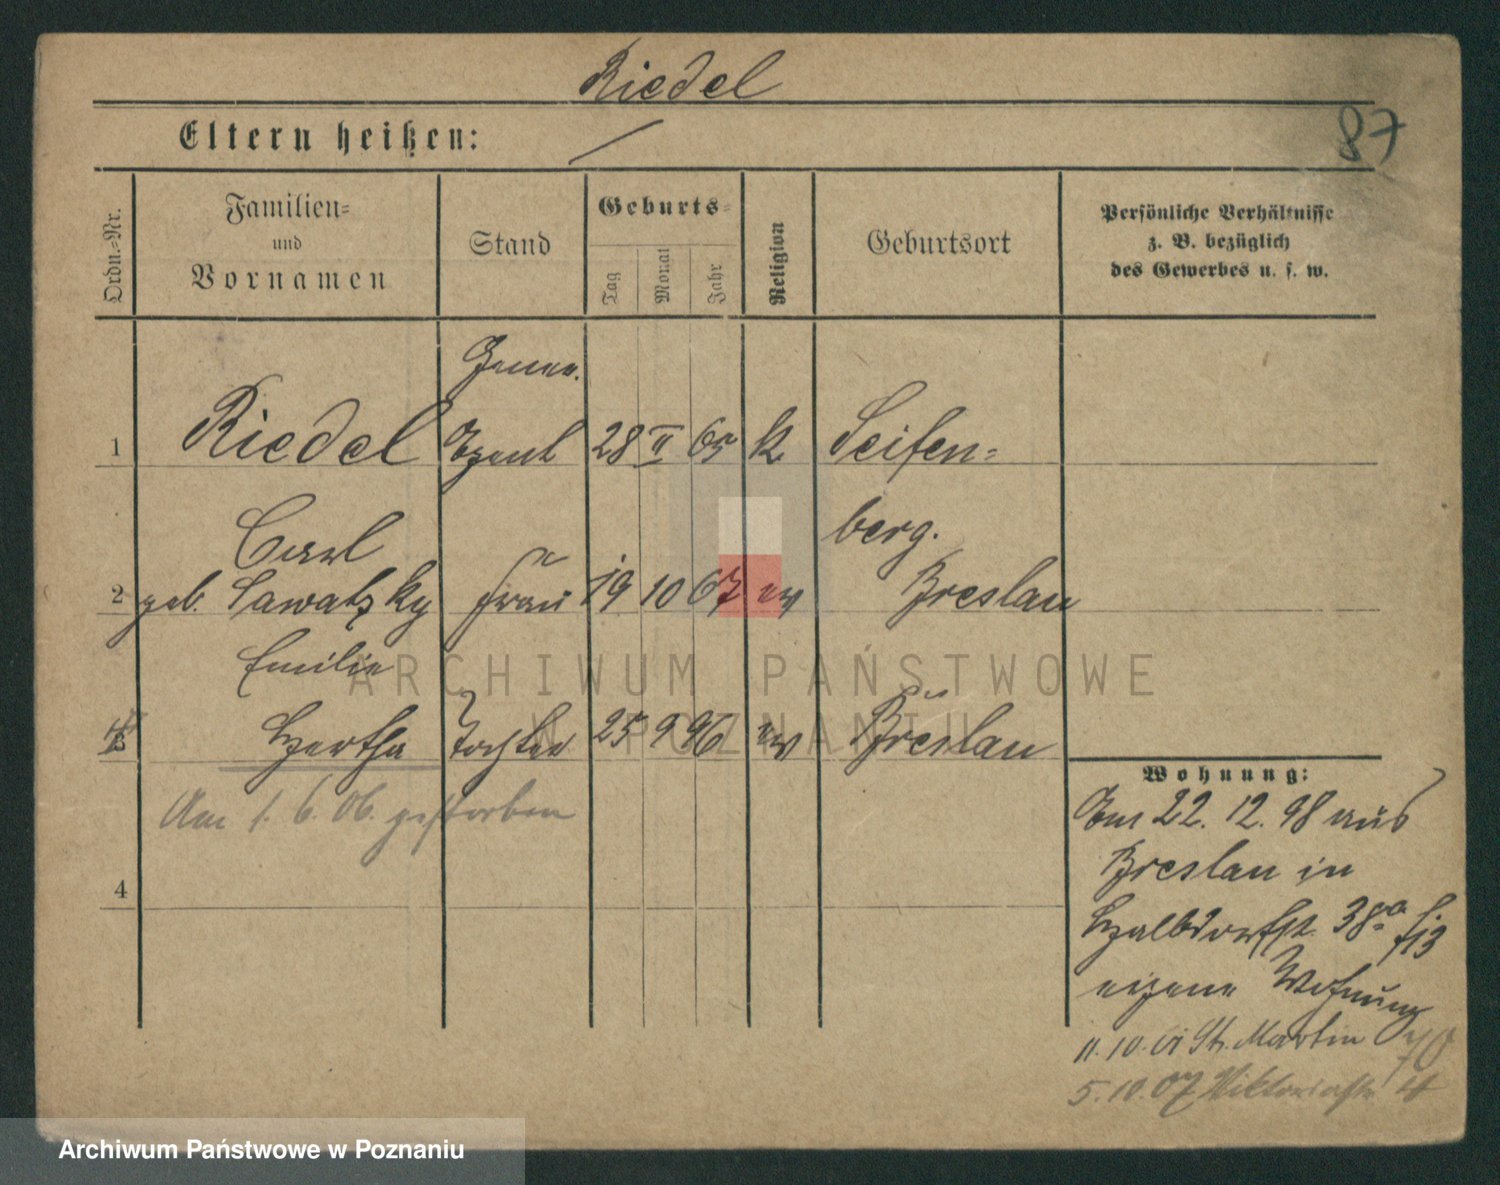 Riedel
Eltern heißen:
87
Ordn.-Nr.
Familien-
und
Vornamen
Stand
Geburts-
Tag
Monat
Jahr
Religion
Geburtsort
Persönliche Verhältnisse
z. B. bezüglich
des Gewerbes u. s. w.
1 Riedel Agent 28 II 65 k. Seifen-
Carl berg.
2 geb. Sawatzky Frau 19 10 67 ev Breslau
Emilie
3 Hertha Tochter 25 9 96 ev Breslau
Am 1. 6. 06. gestorben
4
Wohnung:
Am 22. 12. 98 aus
Breslau in
Halbdorfst. 38a
eigene Wohnung
11. 10. 01 St. Martin 70
5. 10. 07 Viktoriastr 4
ARCHIWUM PAŃSTWOWE
W POZNANIU
Archiwum Państwowe w Poznaniu